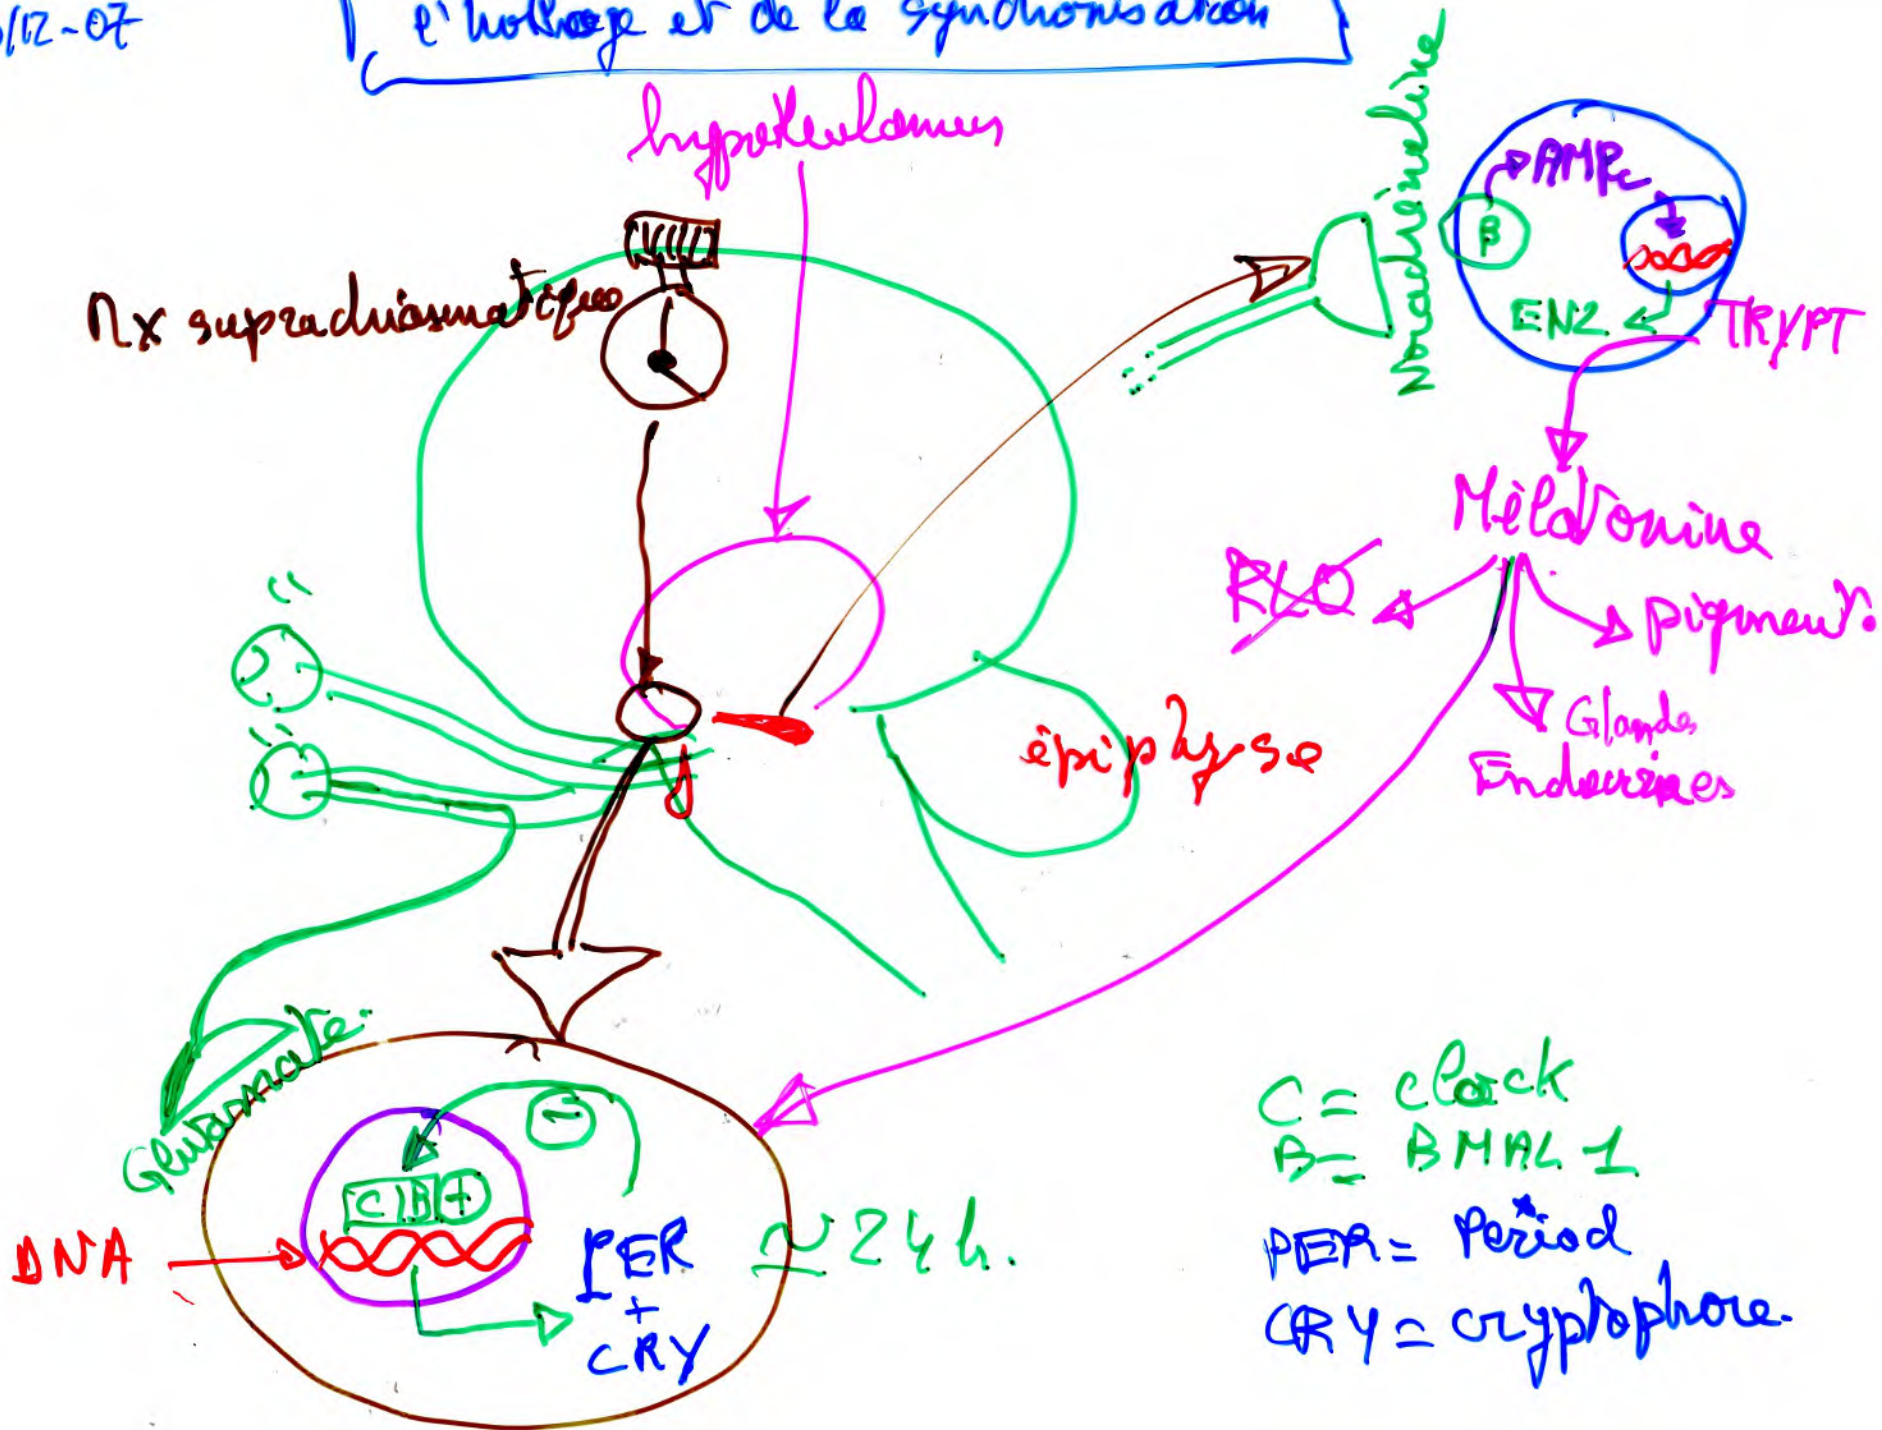 /12-07
l'horloge et de la synchronisation
hypothalamus
Nx suprachiasmatiques
Noradrénaline
AMPc
β
ENZ
TRYPT
Mélatonine
RLO
pigment.
Glandes
Endocrines
épiphyse
Glutamate
C B +
DNA
PER
+
CRY
≃ 24 h.
C = clock
B = BMAL 1
PER = Period
CRY = cryptophore.